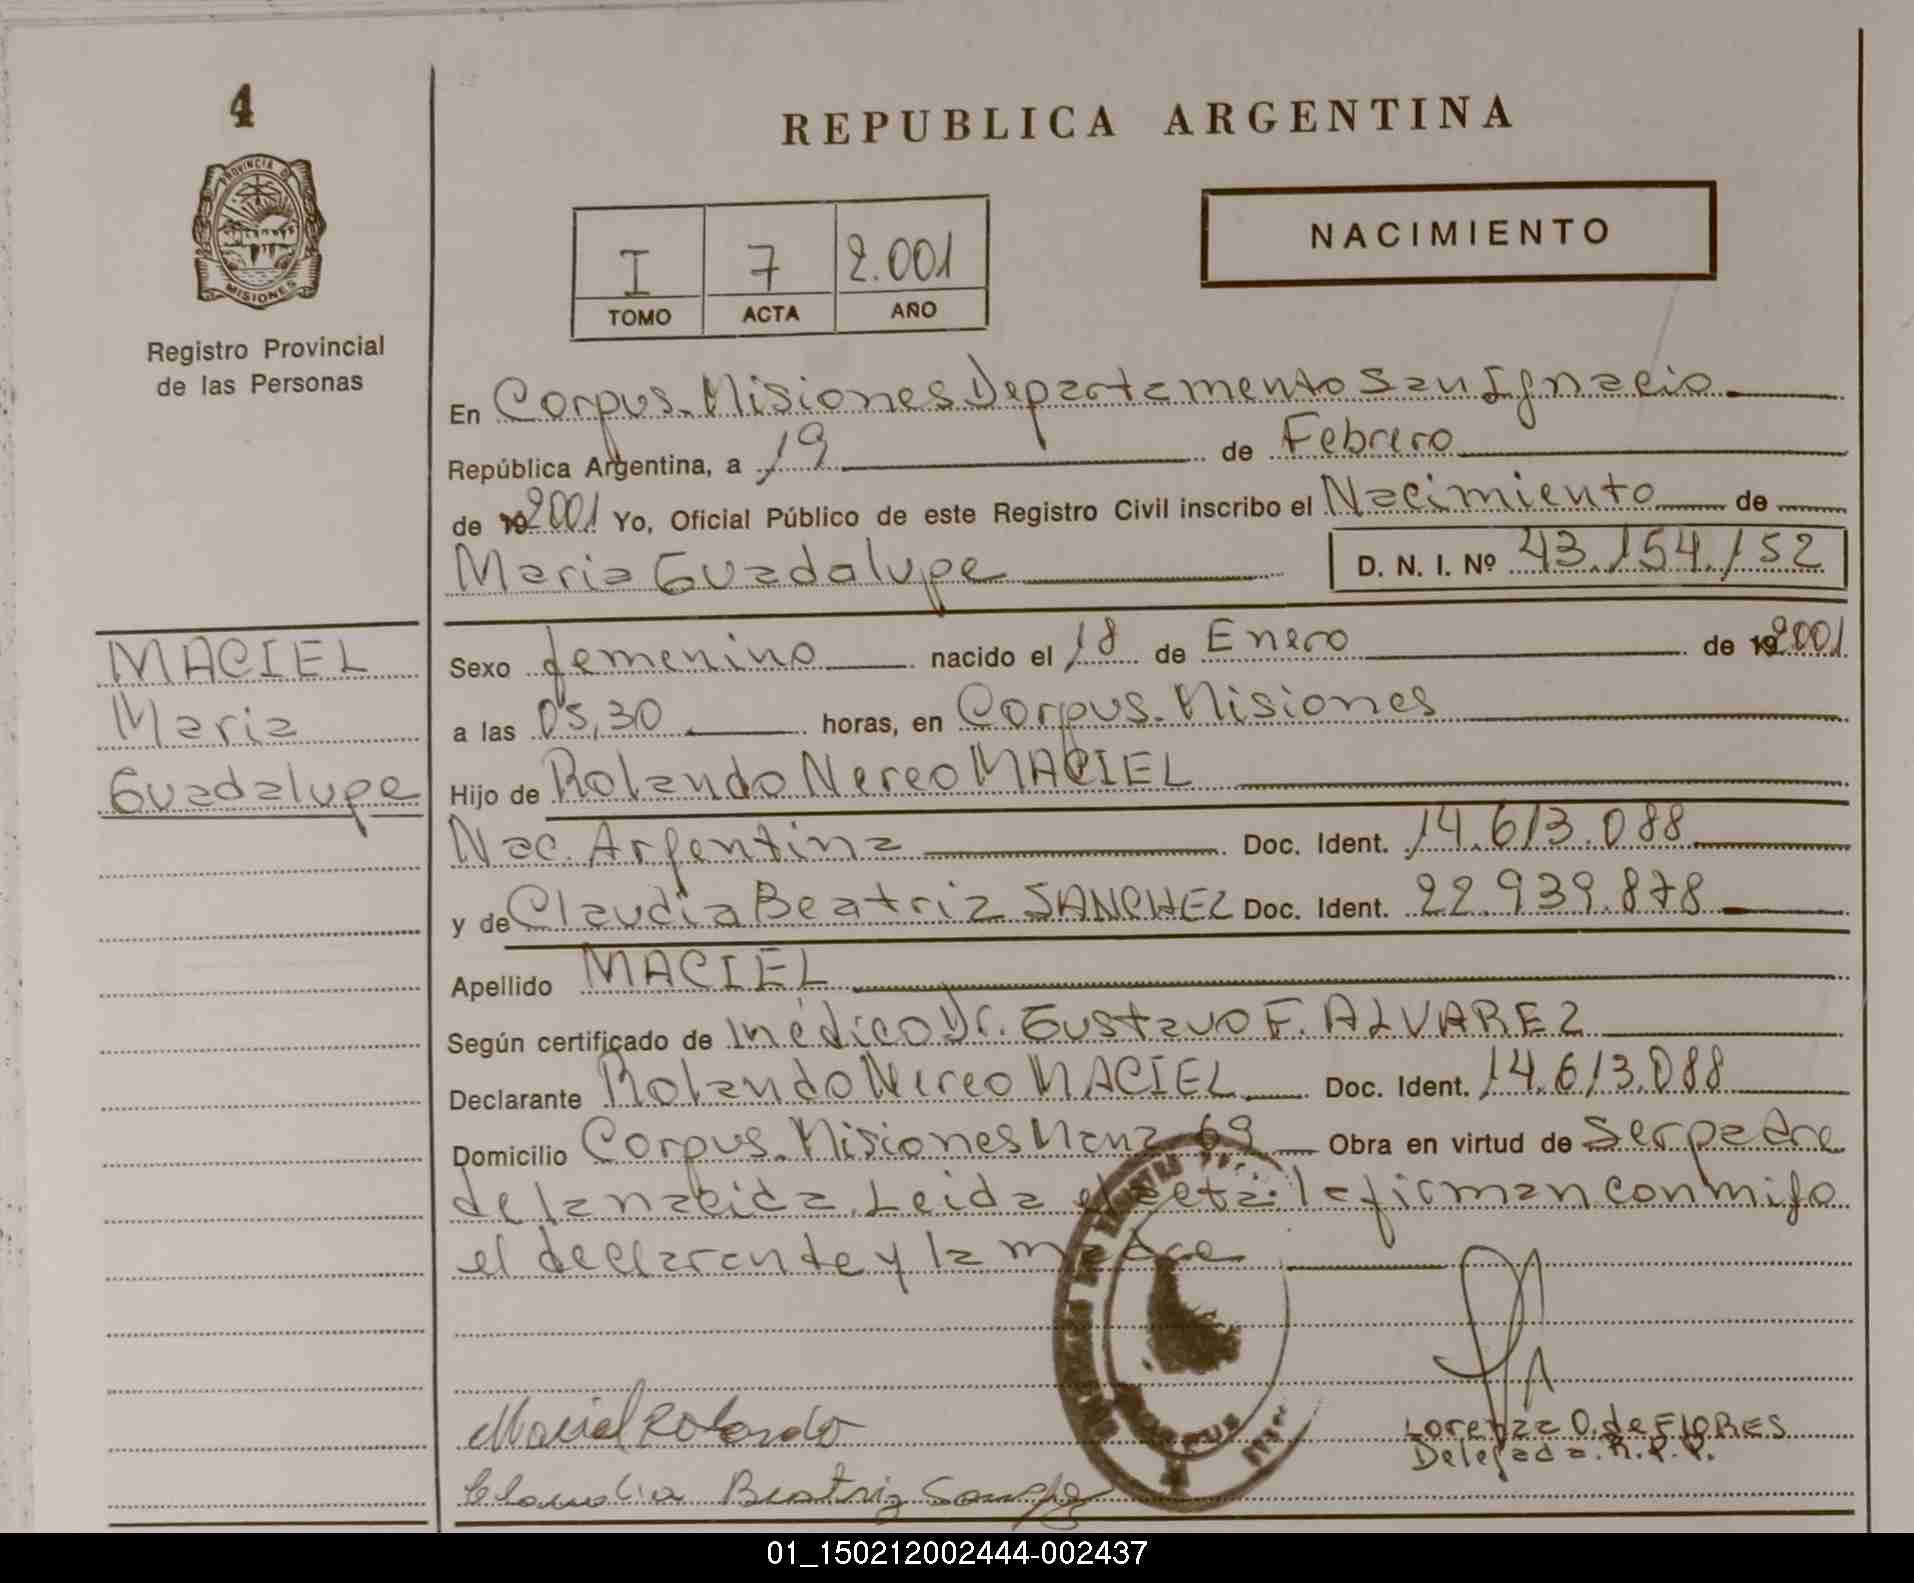 4
PROVINCIA DE
MISIONES
Registro Provincial
de las Personas
REPUBLICA ARGENTINA
I 7 2.001
TOMO ACTA AÑO
NACIMIENTO
En Corpus. Misiones Departamento San Ignacio
República Argentina, a 19 de Febrero
de 19 2001 Yo, Oficial Público de este Registro Civil inscribo el Nacimiento de
Maria Guadalupe D. N. I. Nº 43.154.152
MACIEL
Maria
Guadalupe
Sexo femenino nacido el 18 de Enero de 19 2001
a las 05,30 horas, en Corpus. Misiones
Hijo de Rolando Nereo MACIEL
Nac. Argentina Doc. Ident. 14.613.088
y de Claudia Beatriz SANCHEZ Doc. Ident. 22.939.878
Apellido MACIEL
Según certificado de médico Dr. Gustavo F. ALVAREZ
Declarante Rolando Nereo MACIEL Doc. Ident. 14.613.088
Domicilio Corpus. Misiones Manz 69 Obra en virtud de Ser padre
de la nacida. Leida el acta. la firman conmigo
el declarante y la madre
Maciel Rolando
Claudia Beatriz Sanchez
CORPUS
Lorenza O. de FLORES
Delegada. R.P.P.
01_150212002444-002437